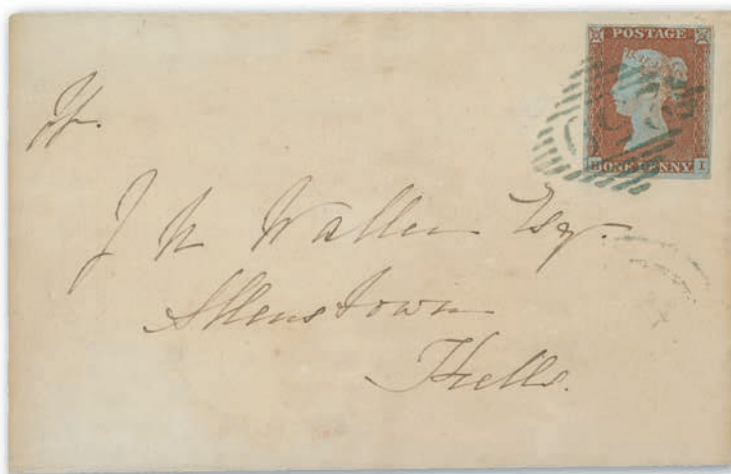 POSTAGE
ONE PENNY I
J N Waller Esq.
Allenstown
Kells.